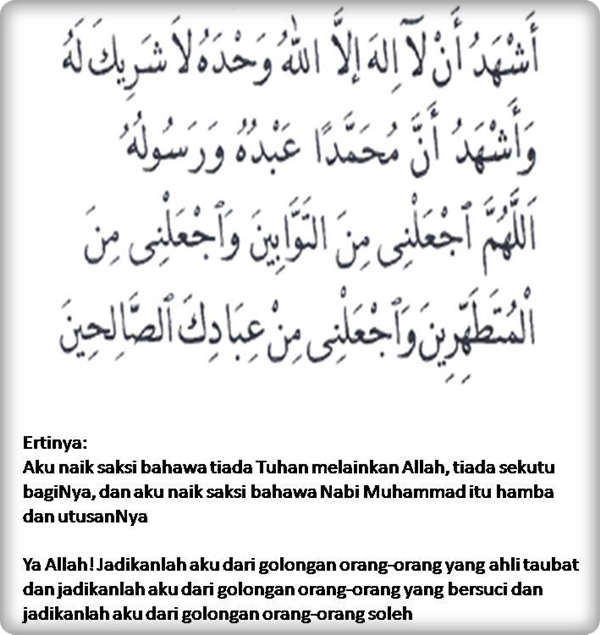 أَشْهَدُ أَنْ لَآ إِلٰهَ إِلَّا اللهُ وَحْدَهُ لَا شَرِيكَ لَهُ
وَأَشْهَدُ أَنَّ مُحَمَّدًا عَبْدُهُ وَرَسُولُهُ
اَللَّهُمَّ ٱجْعَلْنِى مِنَ التَّوَّابِينَ وَٱجْعَلْنِى مِنَ
الْمُتَطَهِّرِينَ وَٱجْعَلْنِى مِنْ عِبَادِكَ ٱلصَّالِحِينَ
Ertinya:
Aku naik saksi bahawa tiada Tuhan melainkan Allah, tiada sekutu
bagiNya, dan aku naik saksi bahawa Nabi Muhammad itu hamba
dan utusanNya
Ya Allah! Jadikanlah aku dari golongan orang-orang yang ahli taubat
dan jadikanlah aku dari golongan orang-orang yang bersuci dan
jadikanlah aku dari golongan orang-orang soleh